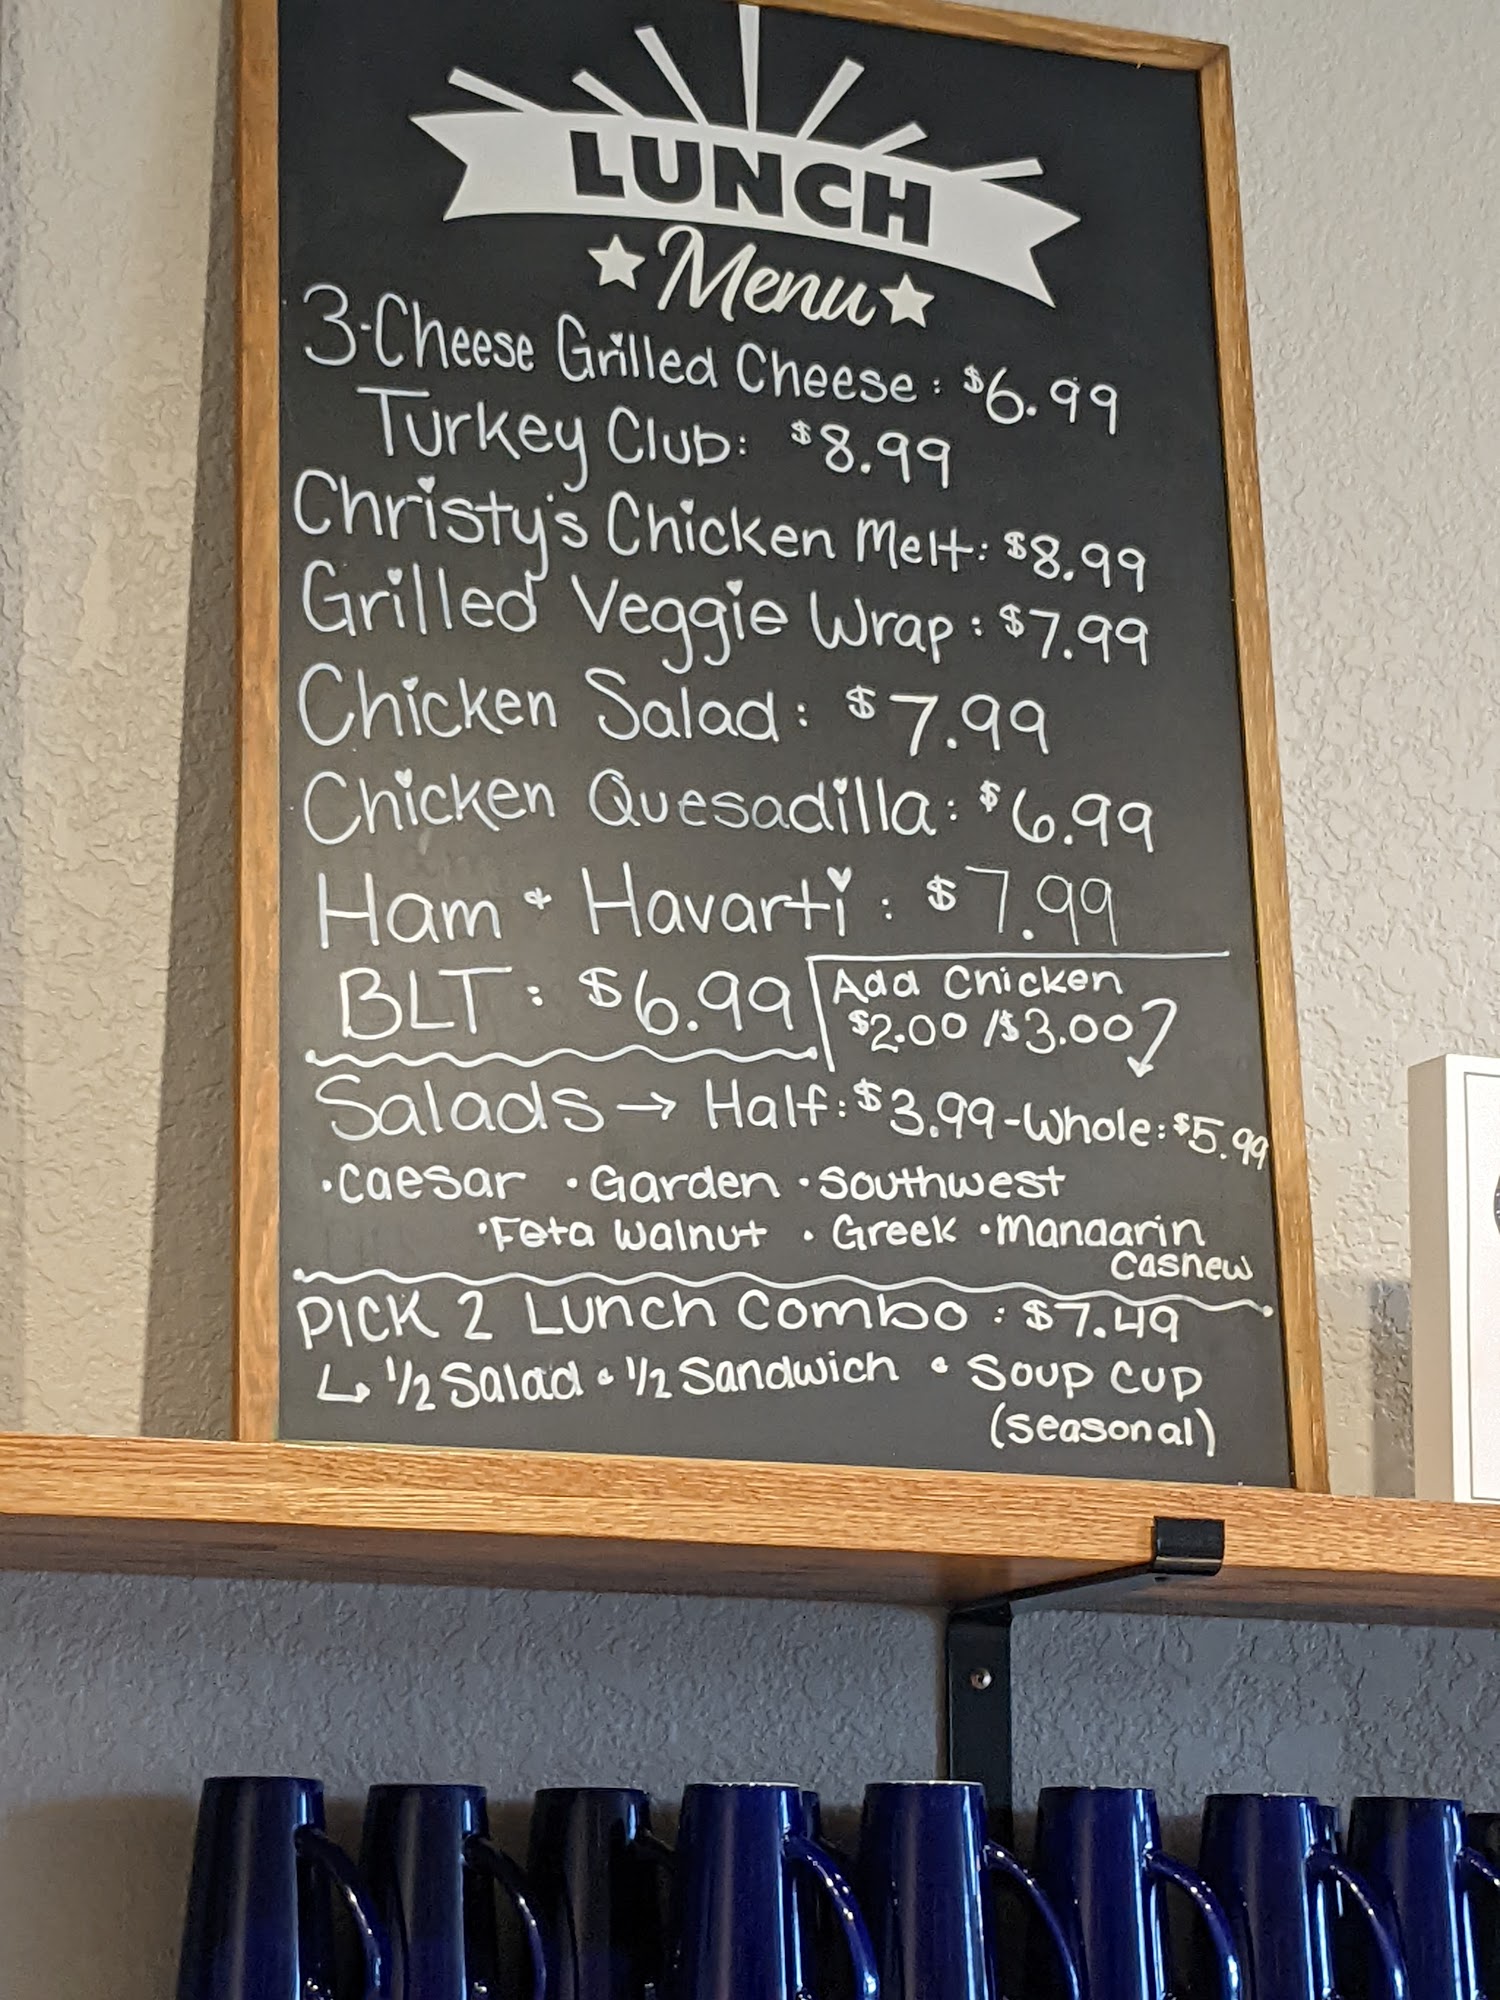 LUNCH
Menu
3-Cheese Grilled Cheese: $6.99
Turkey Club: $8.99
Christy's Chicken Melt: $8.99
Grilled Veggie Wrap: $7.99
Chicken Salad: $7.99
Chicken Quesadilla: $6.99
Ham & Havarti: $7.99
BLT: $6.99
Add Chicken
$2.00/$3.00
Salads → Half: $3.99-Whole: $5.99
•Caesar •Garden •Southwest
•Feta Walnut •Greek •Mandarin
Cashew
PICK 2 Lunch Combo: $7.49
↳ 1/2 Salad • 1/2 Sandwich • Soup Cup
(seasonal)